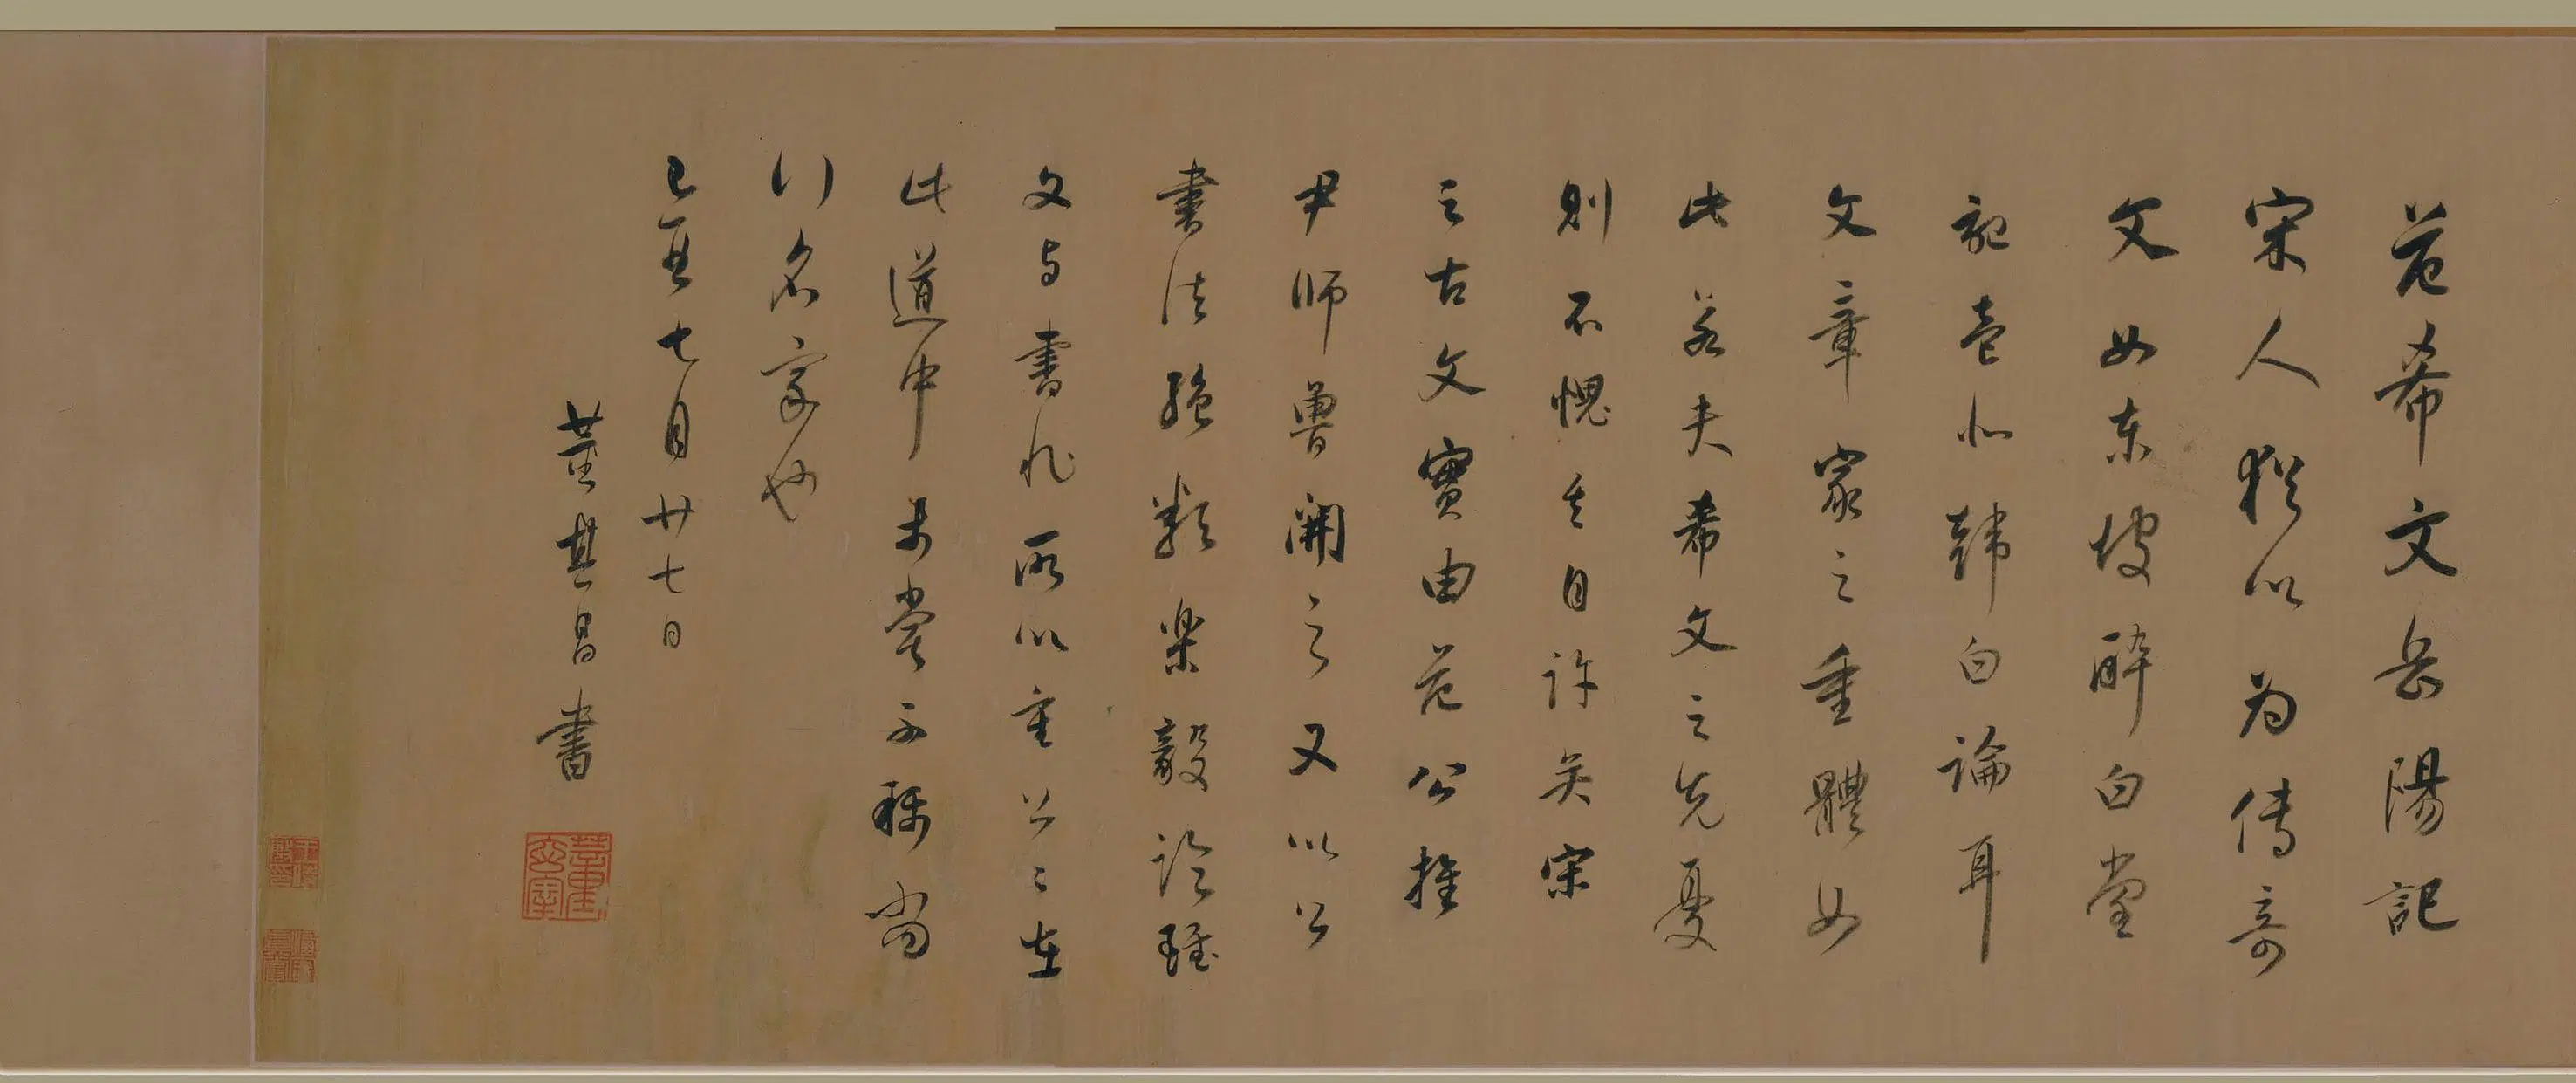 范希文岳陽記
宋人猶以為傳奇
文如東坡醉白堂
記壹似韓白論耳
文章家之重體如
此若夫希文之先憂
則不愧其自許矣宋
之古文實由范公推
尹師魯開之又以公
書法絕類樂毅論雖
文與書非所以重公公在
此道中未嘗不稱當
行名家也
己酉七月廿七日
董其昌書